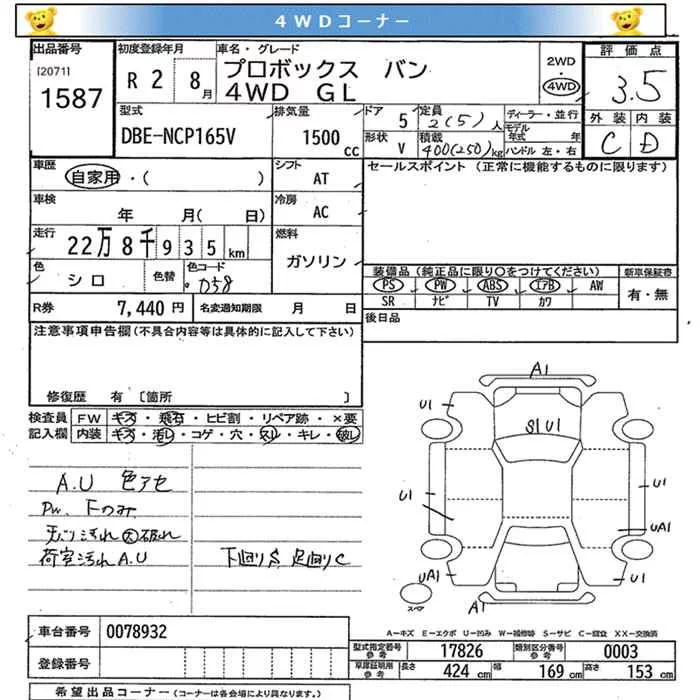 4WDコーナー
出品番号
[2071]
1587
初度登録年月
R 2 8月
車名・グレード
プロボックス バン
4WD GL
2WD
・
4WD
評価点
3.5
外装 内装
C D
型式
DBE-NCP165V
排気量
1500
cc
ドア
5
形状
V
定員
2(5)人
積載
400(250)kg
ディーラー・並行
モデル
年式 年
ハンドル 左・右
車歴
自家用・( )
シフト
AT
セールスポイント (正常に機能するものに限ります)
車検
年 月( 日)
冷房
AC
走行
22万8千935km
燃料
ガソリン
色
シロ
色替
色コード
058
装備品(純正品に限り○をつけてください)
新車保証書
PS PW ABS エアB AW
SR ナビ TV カワ
有・無
R券
7,440円
名変通知期限 月 日
後日品
注意事項申告欄(不具合内容等は具体的に記入して下さい)
修復歴 有 [箇所 ]
検査員
記入欄
FW キズ・飛石・ヒビ割・リペア跡・×要
内装 キズ・汚レ・コゲ・穴・スレ・キレ・破レ
A.U 色アセ
PW. Fのみ
天バリ汚れ 大 破れ
荷室汚れ A.U
下回りS 足回りC
A1
U1
S1 U1
U1
U1
UA1
UA1
U1
A1
スペア
A-キズ E-エクボ U-凹み W-補修跡 S-サビ C-腐食 XX-交換済
車台番号
0078932
登録番号
型式指定番号
参考
17826
類別区分番号
参考
0003
車庫証明用
参考
長さ 424 cm
幅 169 cm
高さ 153 cm
希望出品コーナー(コーナーは各会場により異なります。)